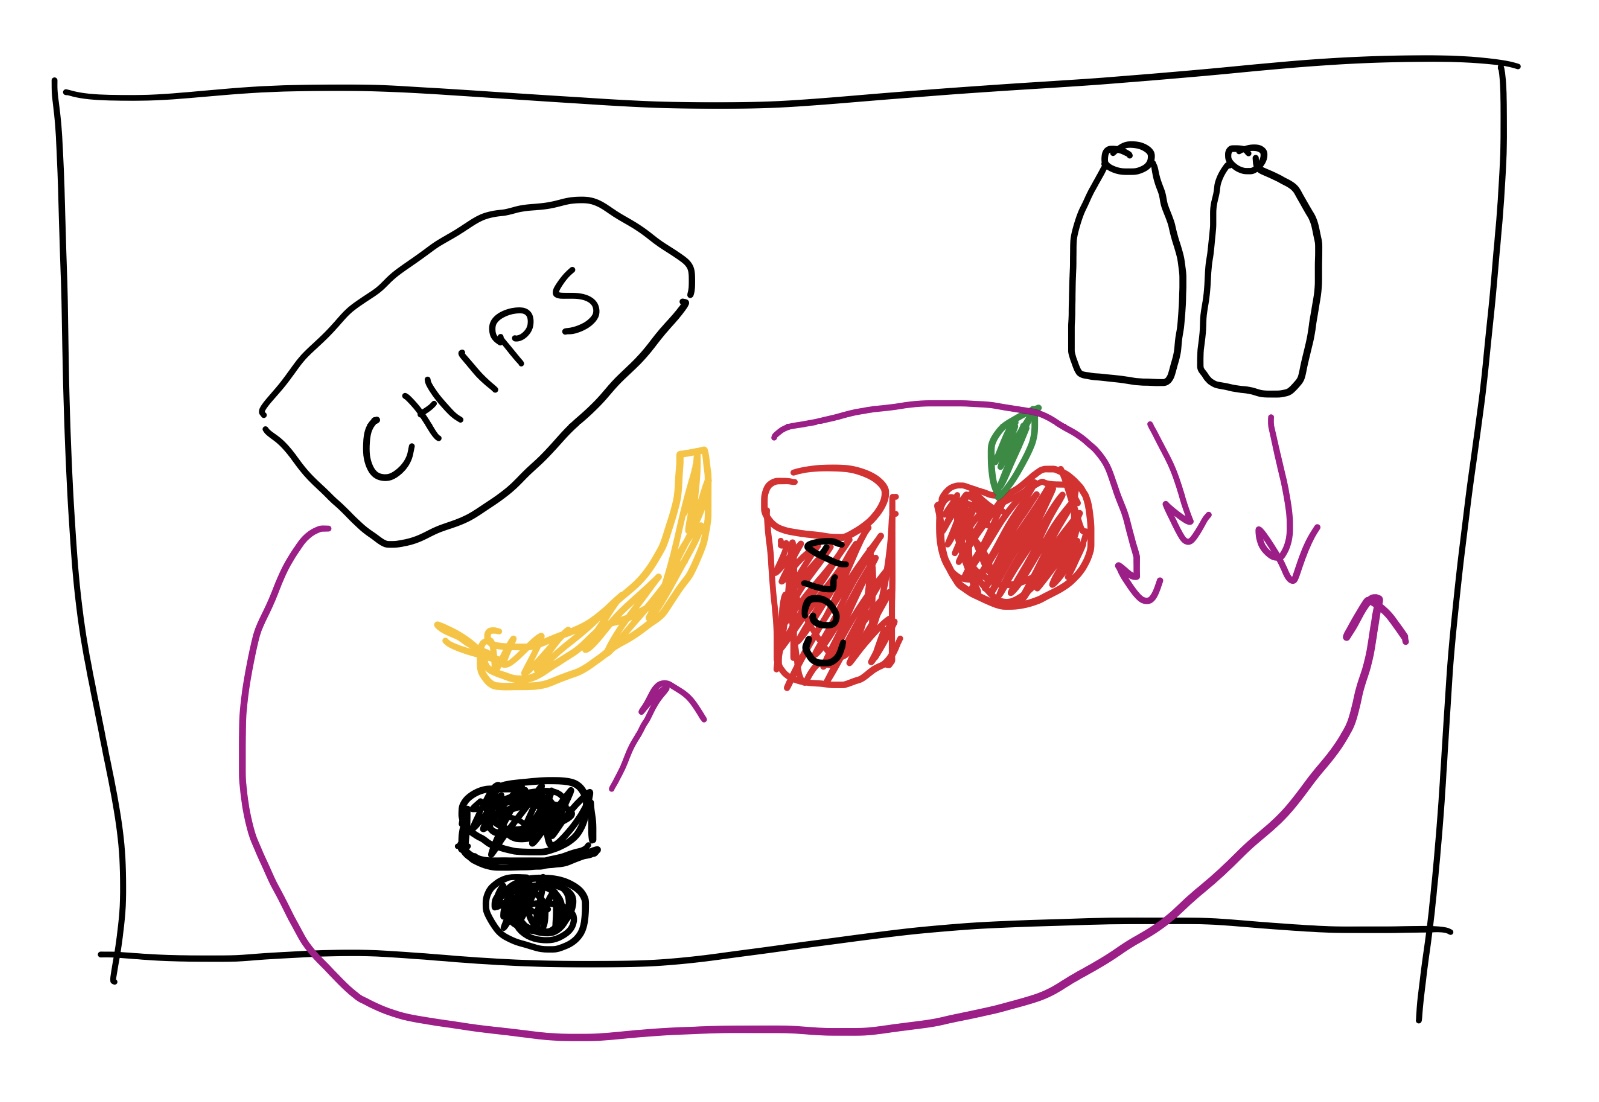 CHIPS
COLA